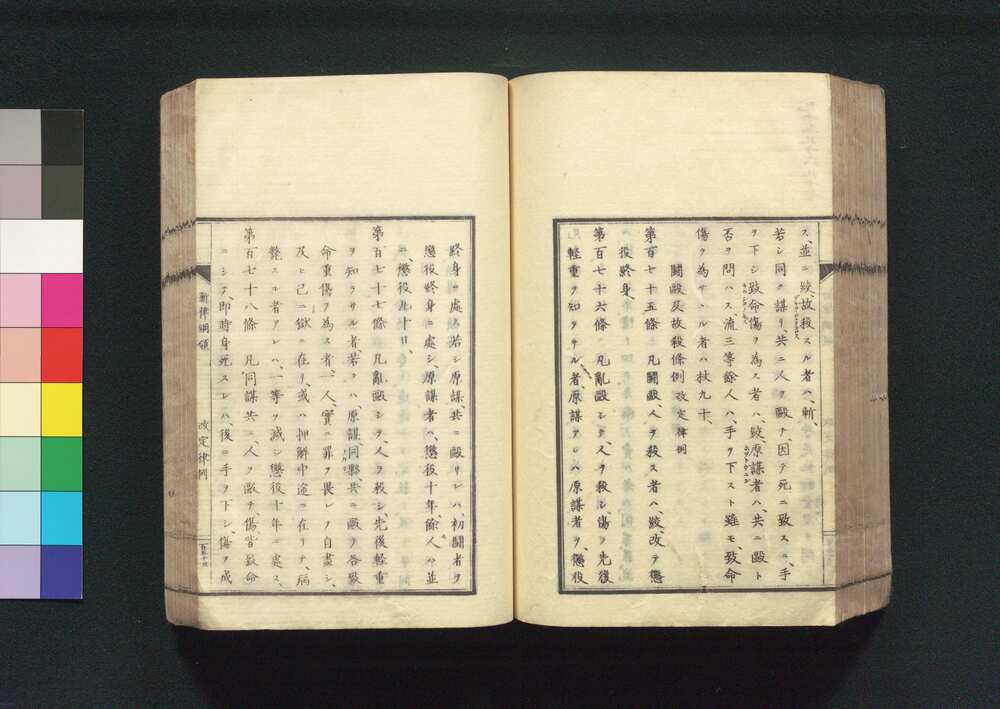 ス、並ニ絞、故殺スル者ハ、斬、
若シ同ク謀リ、共ニ人ヲ毆チ、因テ死ニ致スニ、手
ヲ下シ致命傷ヲ為ス者ハ、絞、原謀者ハ、共ニ毆ト
否ヲ問ハス、流三等、餘人ハ、手ヲ下スト雖モ致命
傷ヲ為サヽル者ハ杖九十、
鬪毆及故殺條例 改定律例
第百七十五條 凡鬪毆、人ヲ殺ス者ハ、絞、改テ懲
役終身、
第百七十六條 凡亂毆シテ、人ヲ殺シ、傷ヲ先後
輕重ヲ知ラサル者、原謀アレハ原謀者ヲ、懲役
終身ニ處シ、若シ原謀、共ニ毆サレハ、初鬪者ヲ
懲役終身ニ處シ、原謀者ハ、懲役十年、餘人ハ並
ニ、懲役九十日、
第百七十七條 凡亂毆シテ、人ヲ殺シ、先後輕重
ヲ知ラサル者、若クハ、原謀同夥、共ニ毆ヲ各致
命重傷ヲ為ス者、一人、實ニ罪ヲ畏レテ自盡シ、
及ヒ已ニ獄ニ在リ、或ハ押解中途ニ在リテ、病
斃スル者アレハ、一等ヲ減シ懲役十年ニ處ス、
第百七十八條 凡同謀共ニ、人ヲ毆チ、傷皆致命
ニシテ、即時身死スレハ、後ニ手ヲ下シ、傷ヲ成
新律綱領 改定律例